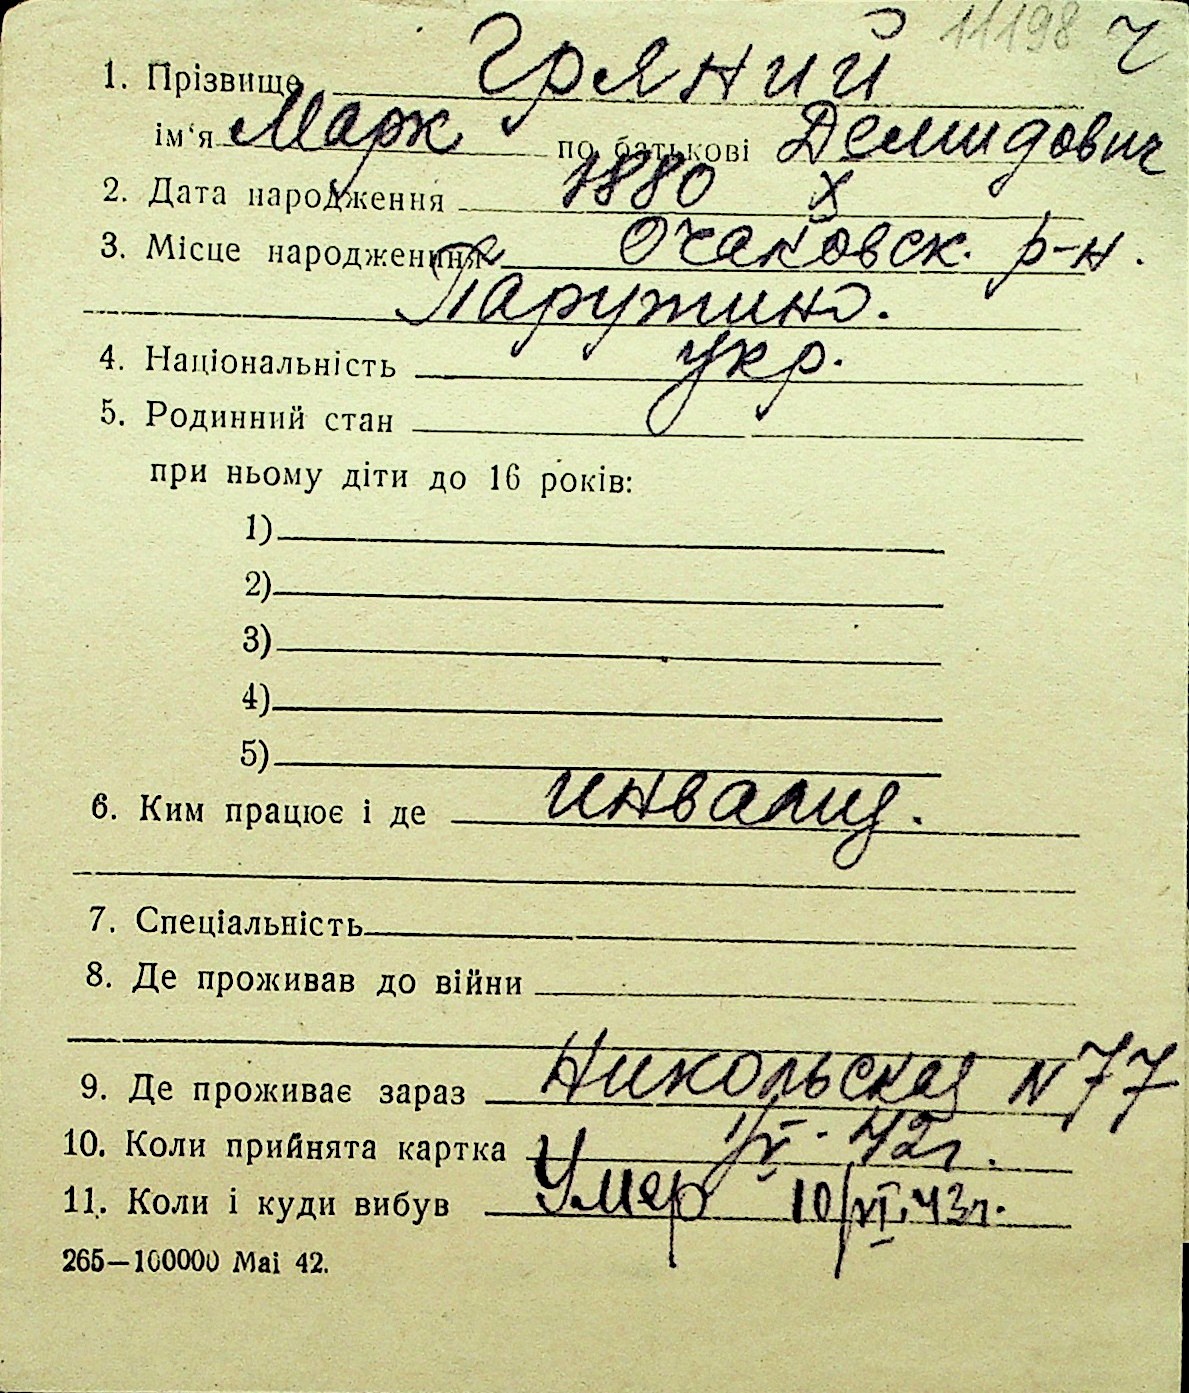 11198 Ч
1. Прізвище Гряний
ім‘я Марк по батькові Демидович
2. Дата народження 1880 X
3. Місце народження Очаковск. р-н.
Парутино.
4. Національність укр.
5. Родинний стан
при ньому діти до 16 років:
1)
2)
3)
4)
5)
6. Ким працює і де инвалид.
7. Спеціальність
8. Де проживав до війни
9. Де проживає зараз Никольская N 77
10. Коли прийнята картка 1/VI. 42г.
11. Коли і куди вибув Умер 10/VI.43г.
265—100000 Mai 42.